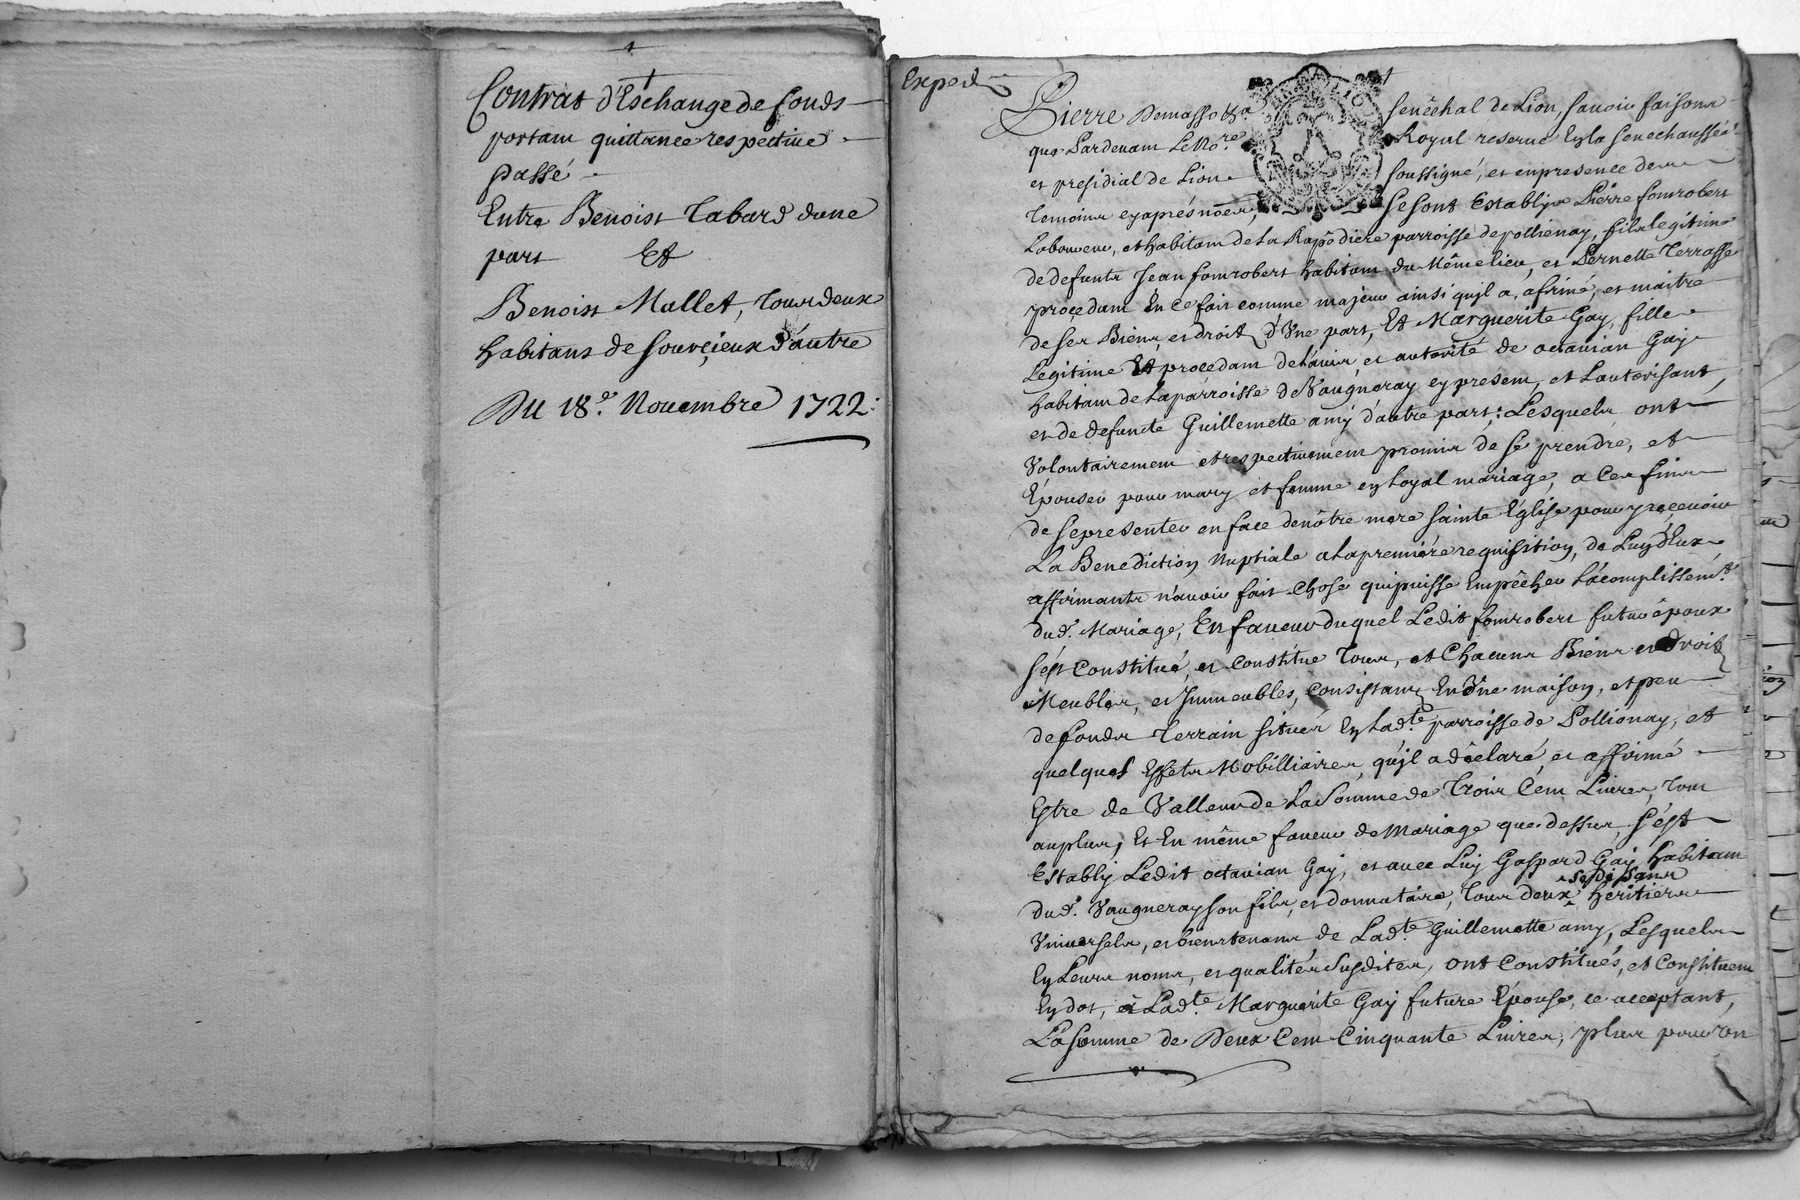 Contrat d'Eschange de fonds
portant quittance respective
Passé
Entre Benoist Tabard d'une
part Et
Benoist Mallet, tous deux
habitans de Sourcieux d'autre
Du 18.e Novembre 1722.
Exped
Pierre Demasso &a Senéchal de Lion, savoir faisons
que Pardevant Le No.re Royal reservé En la Senechaussée
et presidial de Lion soussigné, et en presence des
temoins cy aprés nōés, Se sont Establys Pierre fontrobert
Laboureur, et habitant de la parroisse de pollienay, fils legitime
de defunts Jean fontrobert habitant du Même lieu, et Pernette Terrasse
procedant En ce fait comme majeur ainsi qu'il a, afirmé, et maitre
de ses Biens, et droits d'Une part, Et Marguerite Gay, fille
Legitime Et procedant de l'avis, et autorité de octavian Gay
habitant de La parroisse de Vaugneray cy present, et Lautorisant,
et de defuncte Guillemette amy d'autre part; Lesquels ont
Volontairement et respectivement promis de se prendre, et
Épouser pour mary et femme en Loyal mariage, a Ces fins
de se presenter en face de nôtre mere Sainte Église pour y recevoir
La Benediction Nuptiale a la premiére requisition, de Luy d'Eux
affirmants n'avoir fait Chose qui puisse Empêcher L'acomplissem.t
dud. Mariage, En faveur duquel Ledit fontrobert futur époux
s'est Constitué, et Constitue tous, et Chacuns Biens et droits
Meubles, et Immeubles, Consistants En Une maison, et peu
de fonds terrain situés En Lad.te parroisse de Pollionay, et
quelques Effets Mobilliaires, qu'il a dêclaré, et affirmé
Estre de Valleur de La Somme de Trois Cent Livres, tout
au plus; Et En même faveur de Mariage que dessus, s'est
Estably Ledit octavian Gay, et avec Luy Gaspard Gay habitant
dud. Vaugneray son fils, et donnataire, tous deux se disans héritiers
Universels, et bientenans de Lad.te Guillemette amy, Lesquels
En Leurs noms, et qualités Susdites, ont Constitués, et Constituent
En dot, à Lad.te Marguerite Gay future Épouse, ce acceptant,
La Somme de Deux Cent Cinquante Livres, plus pour on